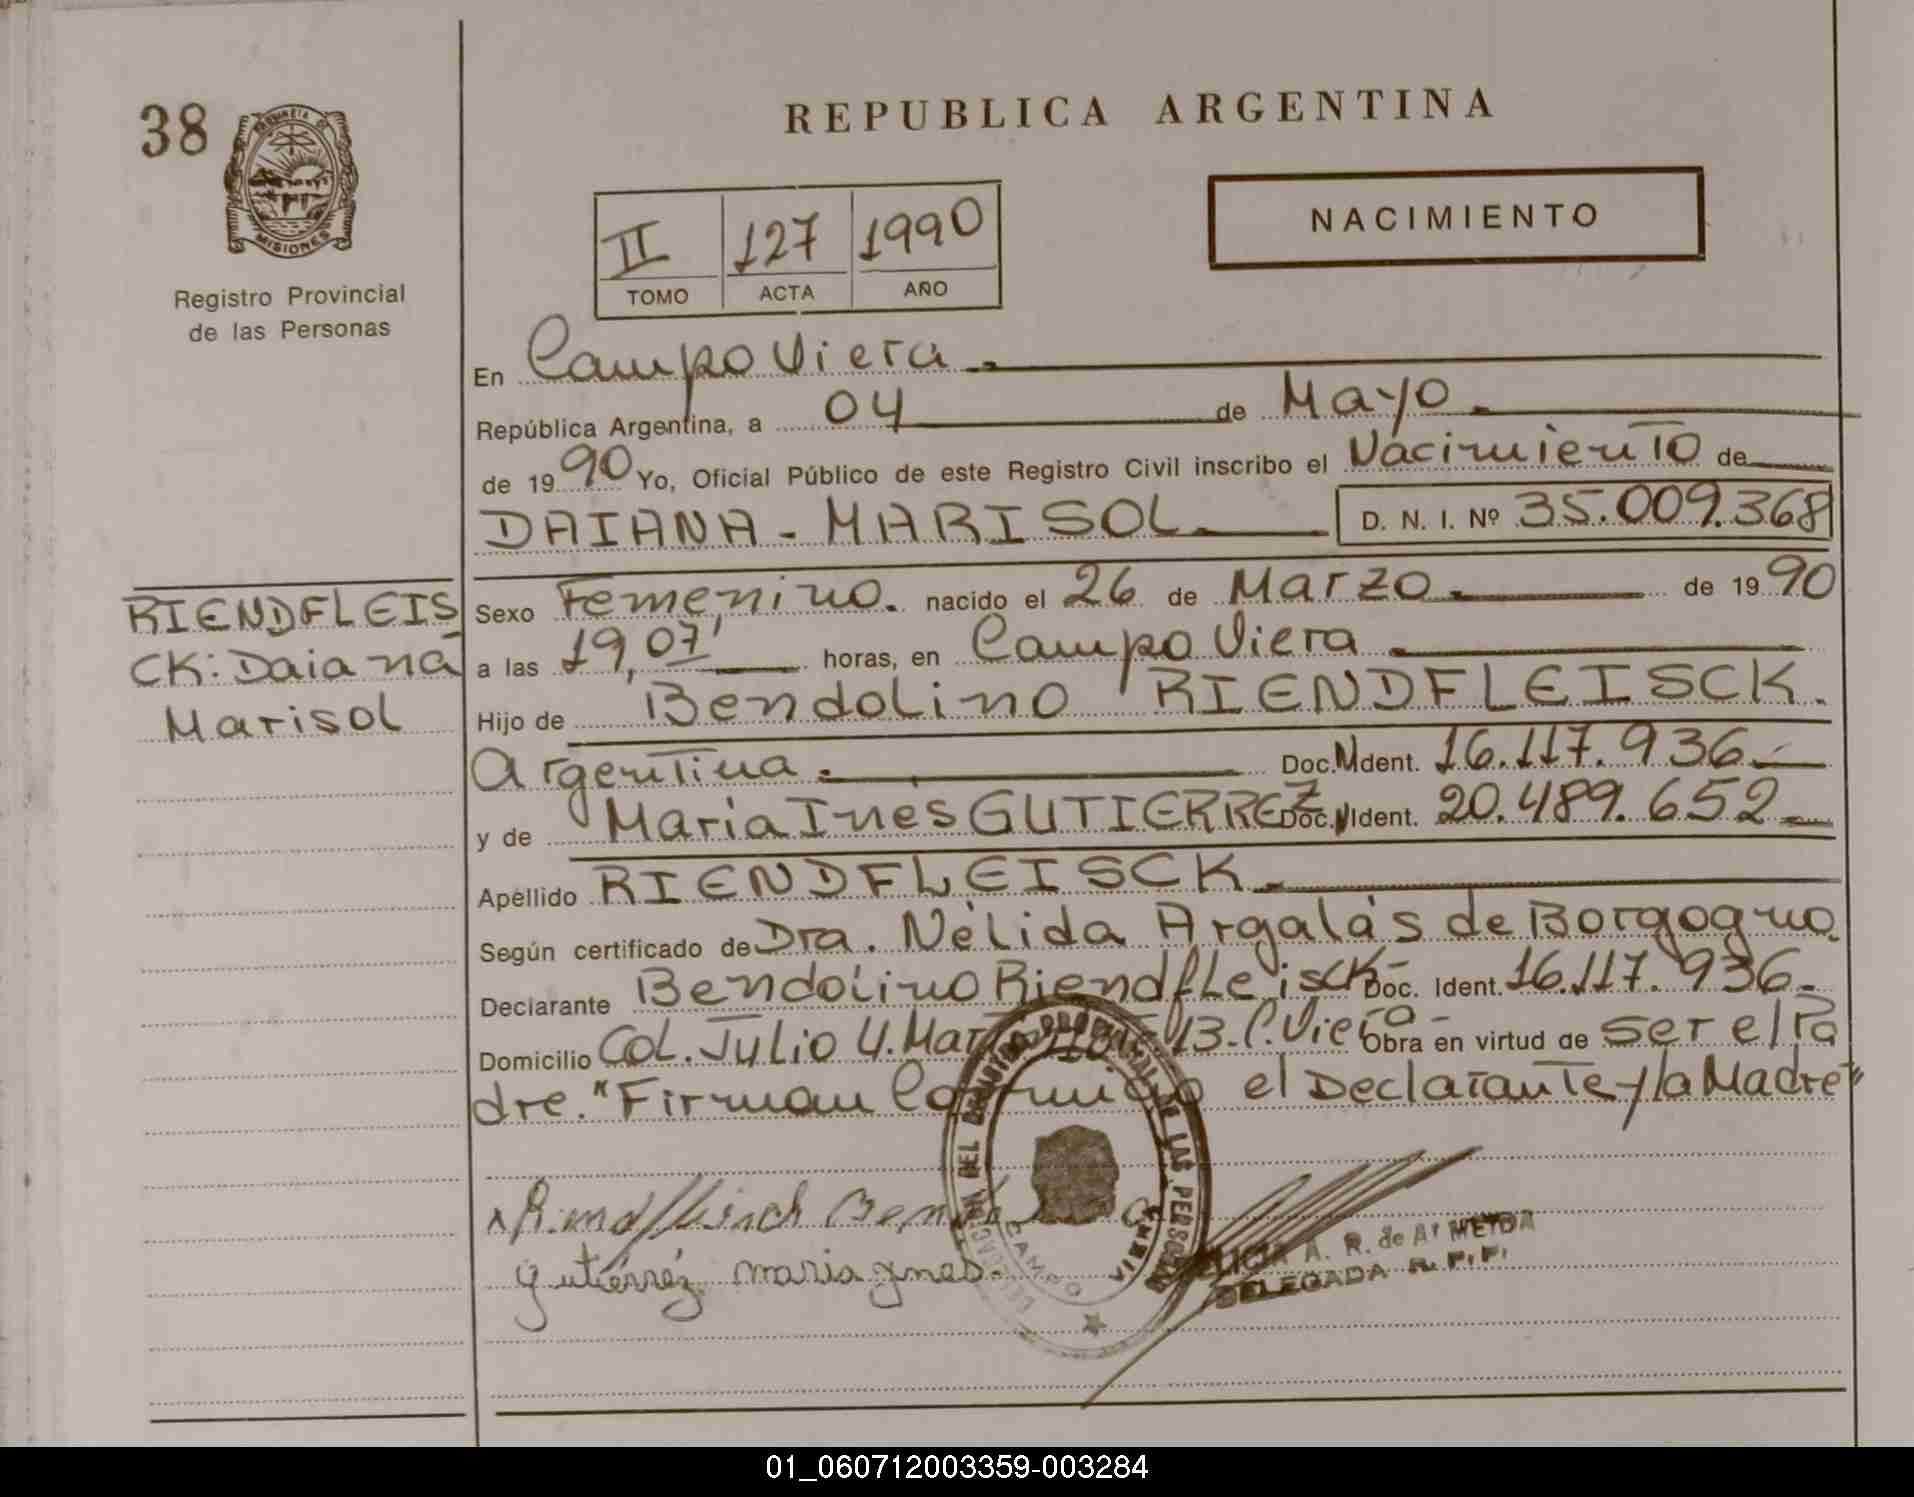 38
MISIONES
Registro Provincial
de las Personas
REPUBLICA ARGENTINA
II 127 1990
TOMO ACTA AÑO
NACIMIENTO
En Campo Viera.
República Argentina, a 04 de Mayo.
de 1990 Yo, Oficial Público de este Registro Civil inscribo el Nacimiento de
DAIANA - MARISOL. D. N. I. Nº 35.009.368
RIENDFLEIS
CK: Daiana
Marisol
Sexo Femenino. nacido el 26 de Marzo. de 1990
a las 19,07' horas, en Campo Viera.
Hijo de Bendolino RIENDFLEISCK.
Argentina. Doc. Ident. 16.117.936.-
y de Maria Ines GUTIERREZ Doc. Ident. 20.489.652-
Apellido RIENDFLEISCK.
Según certificado de Dra. Nélida Argalás de Borgogno.
Declarante Bendolino Riendfleisck- Doc. Ident. 16.117.936.
Domicilio Col. Julio U. Martin 13. C. Viera- Obra en virtud de ser el Pa
dre. "Firman Conmigo el Declarante y la Madre"
gutiérréz maria ynes.
DELEGACION DEL REGISTRO PROVINCIAL DE LAS PERSONAS
CAMPO VIERA
A. R. de Al MEIDA
DELEGADA R. P. P.
01_060712003359-003284